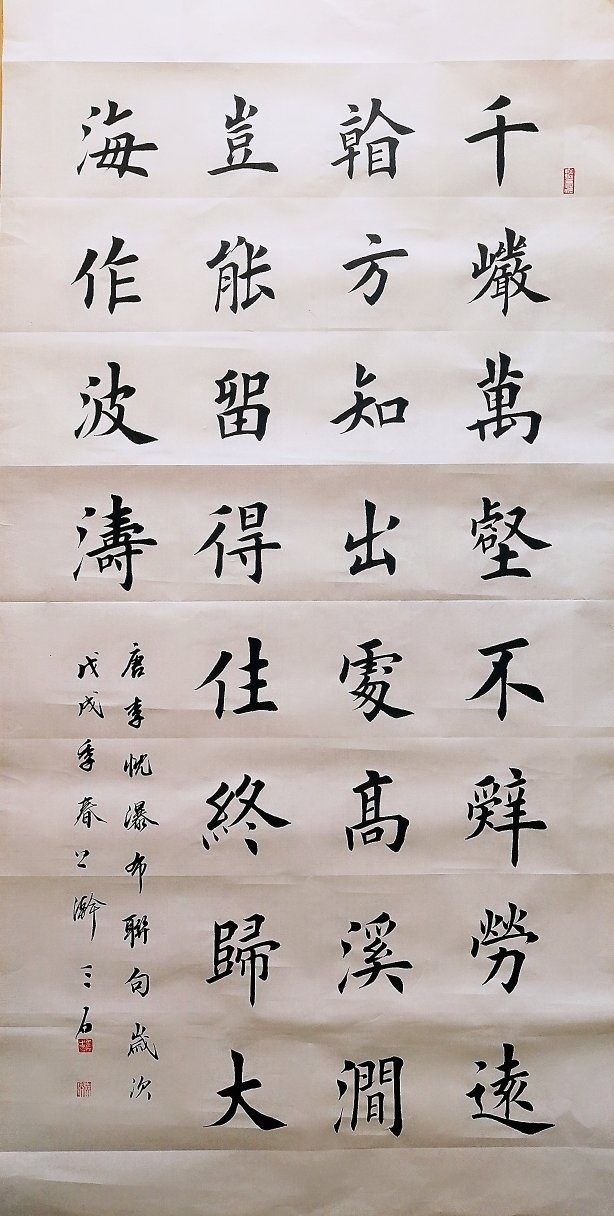 千巖萬壑不辭勞遠
看方知出處高溪澗
豈能留得住終歸大
海作波濤
唐李忱瀑布聯句歲次
戊戌季春上澣三石